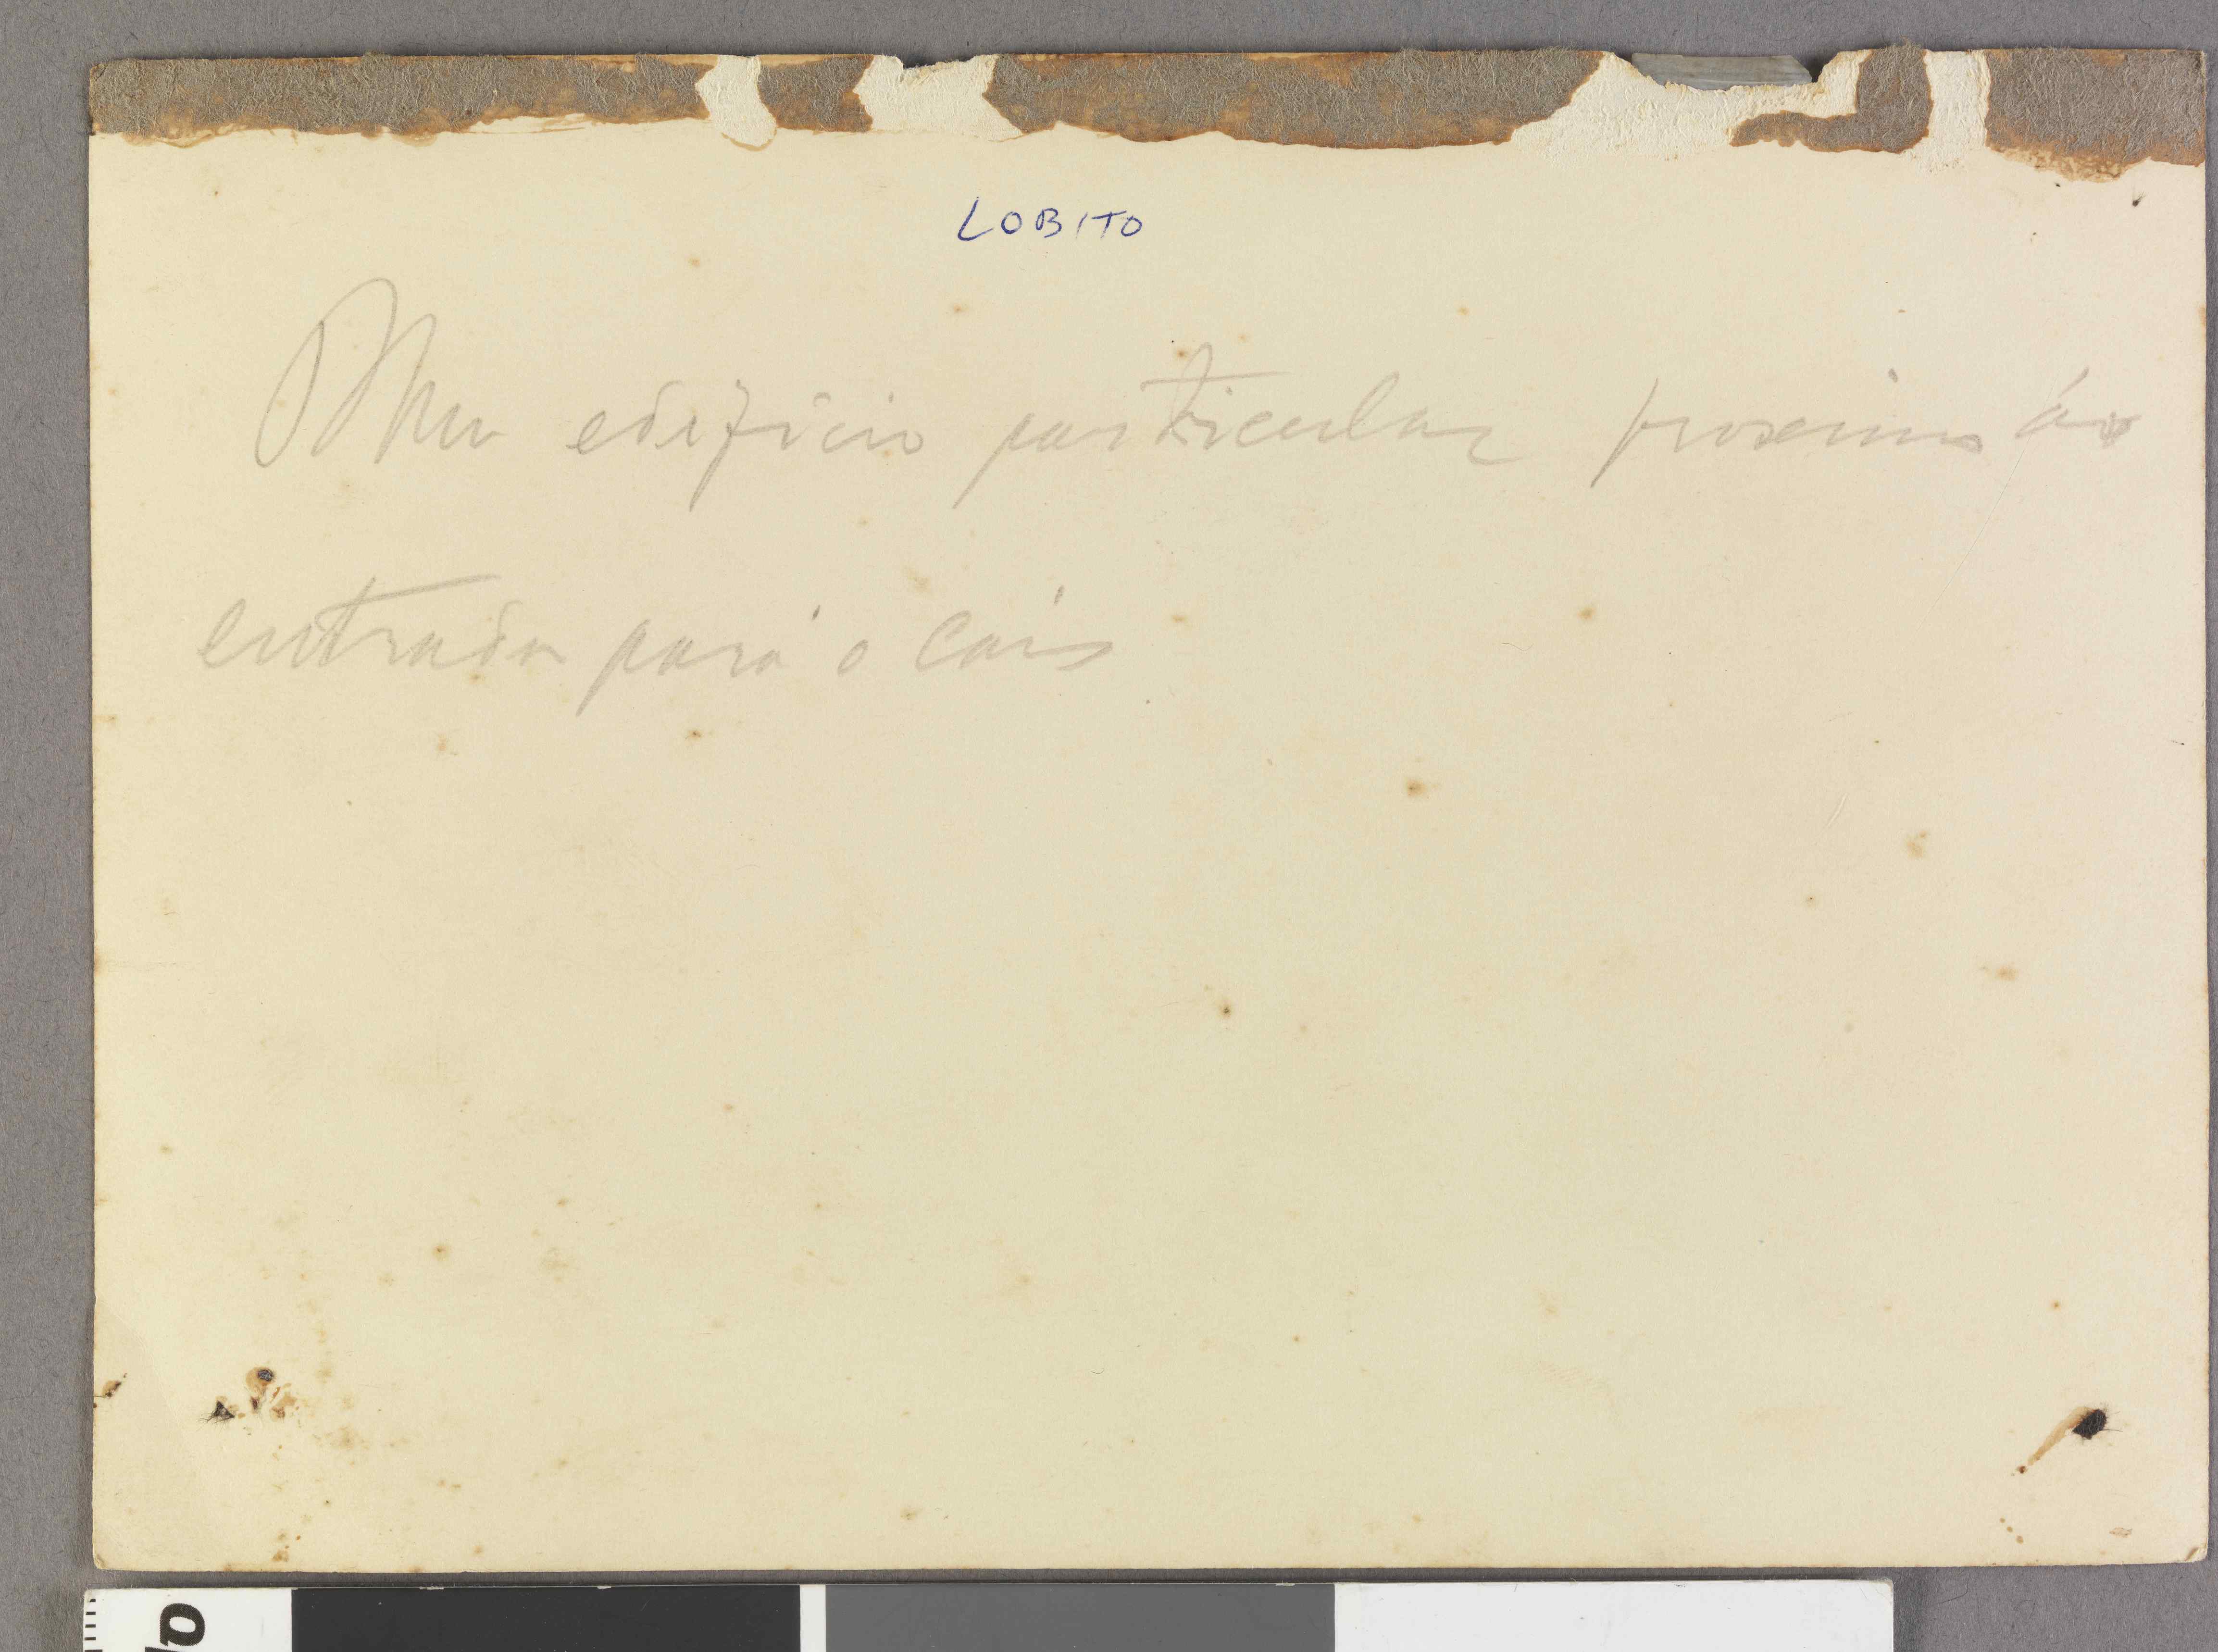 LOBITO
Um edificio particular proximo á
entrada para o cais